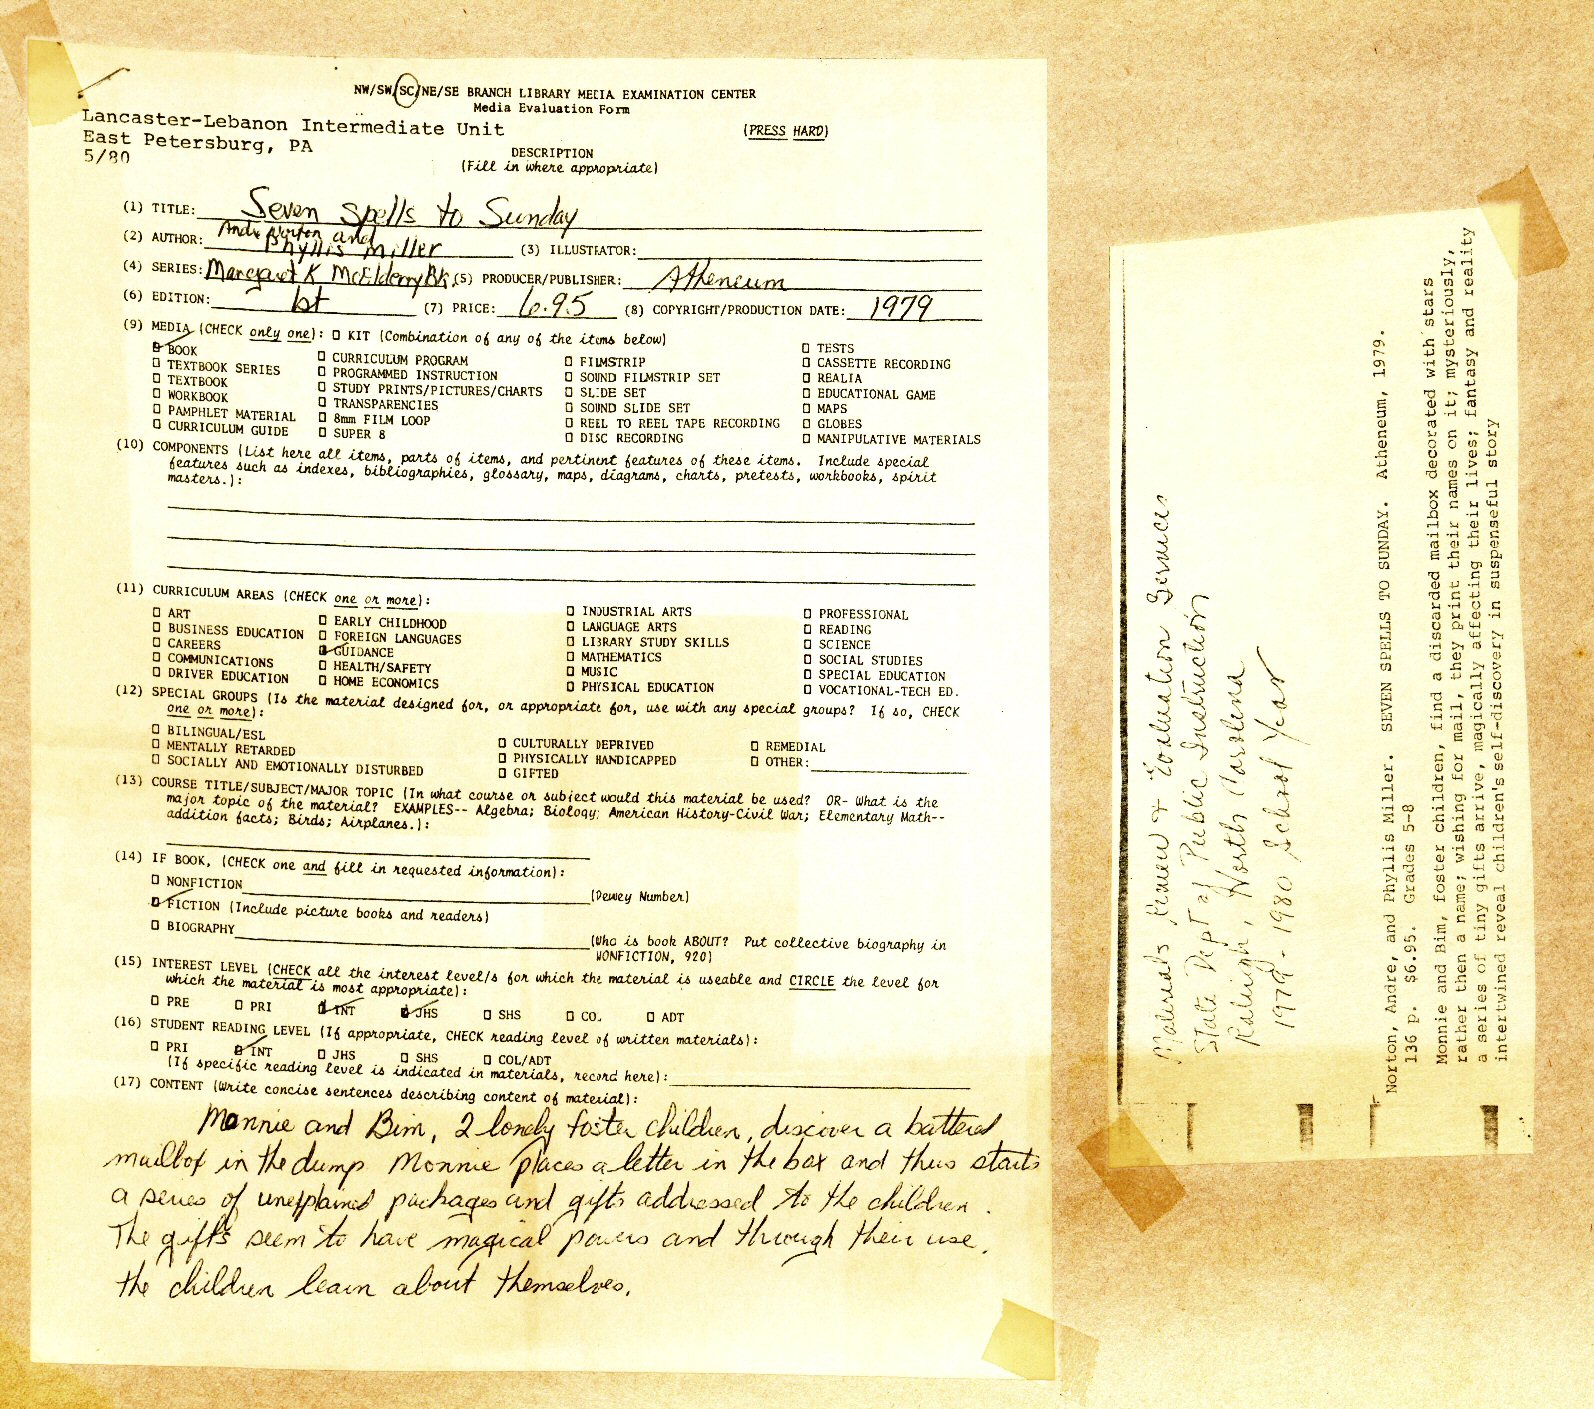 NW/SW/SC/NE/SE BRANCH LIBRARY MEDIA EXAMINATION CENTER
Media Evaluation Form
Lancaster-Lebanon Intermediate Unit
East Petersburg, PA
5/80
(PRESS HARD)
DESCRIPTION
(Fill in where appropriate)
(1) TITLE: Seven Spells to Sunday
(2) AUTHOR: Andre Norton and
Phyllis Miller (3) ILLUSTRATOR:
(4) SERIES: Margaret K McElderry Bk. (5) PRODUCER/PUBLISHER: Atheneum
(6) EDITION: 1st (7) PRICE: 6.95 (8) COPYRIGHT/PRODUCTION DATE: 1979
(9) MEDIA (CHECK only one): KIT (Combination of any of the items below)
BOOK
TEXTBOOK SERIES
TEXTBOOK
WORKBOOK
PAMPHLET MATERIAL
CURRICULUM GUIDE
CURRICULUM PROGRAM
PROGRAMMED INSTRUCTION
STUDY PRINTS/PICTURES/CHARTS
TRANSPARENCIES
8mm FILM LOOP
SUPER 8
FILMSTRIP
SOUND FILMSTRIP SET
SLIDE SET
SOUND SLIDE SET
REEL TO REEL TAPE RECORDING
DISC RECORDING
TESTS
CASSETTE RECORDING
REALIA
EDUCATIONAL GAME
MAPS
GLOBES
MANIPULATIVE MATERIALS
(10) COMPONENTS (List here all items, parts of items, and pertinent features of these items. Include special
features such as indexes, bibliographies, glossary, maps, diagrams, charts, pretests, workbooks, spirit
masters.):
(11) CURRICULUM AREAS (CHECK one or more):
ART
BUSINESS EDUCATION
CAREERS
COMMUNICATIONS
DRIVER EDUCATION
EARLY CHILDHOOD
FOREIGN LANGUAGES
GUIDANCE
HEALTH/SAFETY
HOME ECONOMICS
INDUSTRIAL ARTS
LANGUAGE ARTS
LIBRARY STUDY SKILLS
MATHEMATICS
MUSIC
PHYSICAL EDUCATION
PROFESSIONAL
READING
SCIENCE
SOCIAL STUDIES
SPECIAL EDUCATION
VOCATIONAL-TECH ED.
(12) SPECIAL GROUPS (Is the material designed for, or appropriate for, use with any special groups? If so, CHECK
one or more):
BILINGUAL/ESL
MENTALLY RETARDED
SOCIALLY AND EMOTIONALLY DISTURBED
CULTURALLY DEPRIVED
PHYSICALLY HANDICAPPED
GIFTED
REMEDIAL
OTHER:
(13) COURSE TITLE/SUBJECT/MAJOR TOPIC (In what course or subject would this material be used? OR- What is the
major topic of the material? EXAMPLES-- Algebra; Biology; American History-Civil War; Elementary Math--
addition facts; Birds; Airplanes.):
(14) IF BOOK, (CHECK one and fill in requested information):
NONFICTION (Dewey Number)
FICTION (Include picture books and readers)
BIOGRAPHY (Who is book ABOUT? Put collective biography in
NONFICTION, 920)
(15) INTEREST LEVEL (CHECK all the interest level/s for which the material is useable and CIRCLE the level for
which the material is most appropriate):
PRE PRI INT JHS SHS COL ADT
(16) STUDENT READING LEVEL (If appropriate, CHECK reading level of written materials):
PRI INT JHS SHS COL/ADT
(If specific reading level is indicated in materials, record here):
(17) CONTENT (Write concise sentences describing content of material):
Monnie and Bim, 2 lonely foster children, discover a battered
mailbox in the dump Monnie places a letter in the box and thus starts
a series of unexplained packages and gifts addressed to the children.
The gifts seem to have magical powers and through their use,
the children learn about themselves.
Materials Review & Evaluation Services
State Dept of Public Instruction
Raleigh, North Carolina
1979-1980 School Year
Norton, Andre, and Phyllis Miller. SEVEN SPELLS TO SUNDAY. Atheneum, 1979.
136 p. $6.95. Grades 5-8
Monnie and Bim, foster children, find a discarded mailbox decorated with stars
rather then a name; wishing for mail, they print their names on it; mysteriously,
a series of tiny gifts arrive, magically affecting their lives; fantasy and reality
intertwined reveal children's self-discovery in suspenseful story